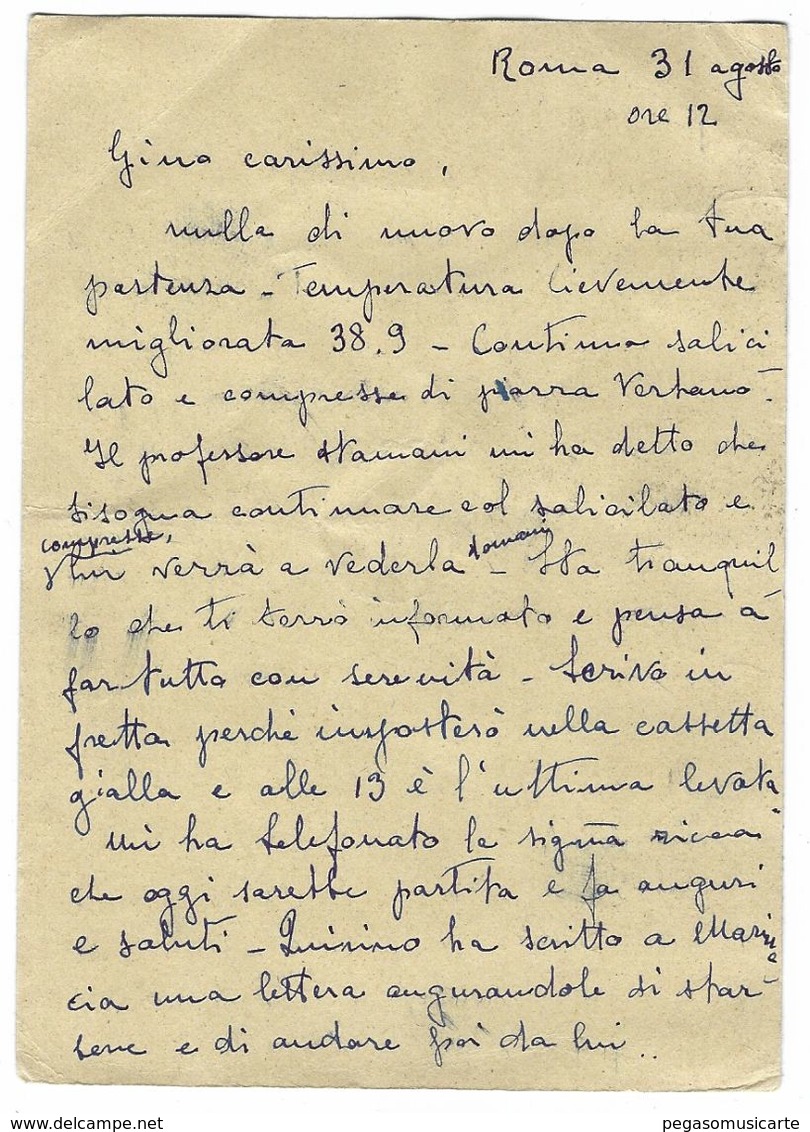 Roma 31 agosto
ore 12
Gino carissimo,
nulla di nuovo dopo la tua
partenza - Temperatura lievemente
migliorata 38.9 - Continua salici
lato e compresse di piazza Verbano -
Il professore stamani mi ha detto che
bisogna continuare col salicilato e
compresse,
lui verrà a vederla domani - Sta tranquil
lo che ti terrò informato e pensa a
far tutto con serenità - Scrivo in
fretta perchè imposterò nella cassetta
gialla e alle 13 è l'ultima levata
Mi ha telefonato la sigma
che oggi sarebbe partita e fa auguri
e saluti - Quirino ha scritto a Mari
cia una lettera augurandole di star
sene e di andare poi da lui..
pegasomusicarte